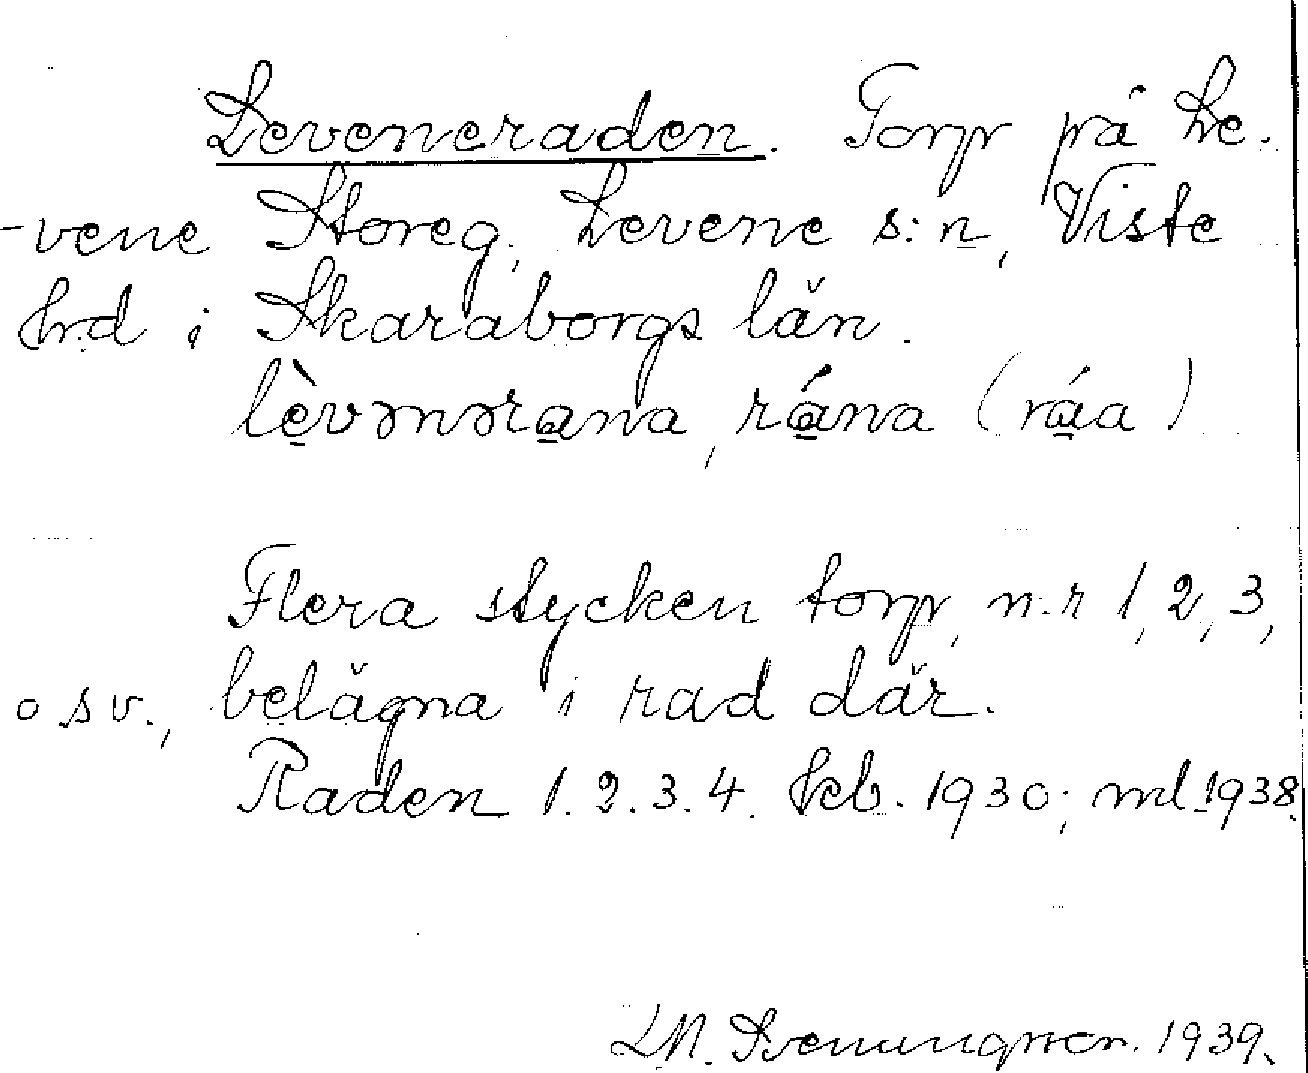 Leveneraden. Torp på Le-
-vene Storeg. Levene s:n, Viste
hrd i Skaraborgs län.
lèvənərana, rána (ráa)
Flera stycken torp, n:r 1, 2, 3,
o.s.v., belägna i rad där.
Raden 1. 2. 3. 4. kb. 1930; ml. 1938.
1939.